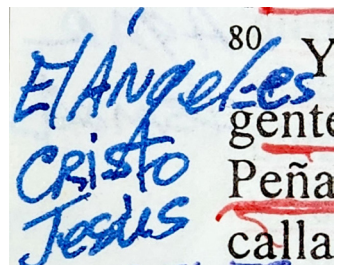 El Ángel=es
Cristo
Jesús
80 Y
gente
Peña
calla